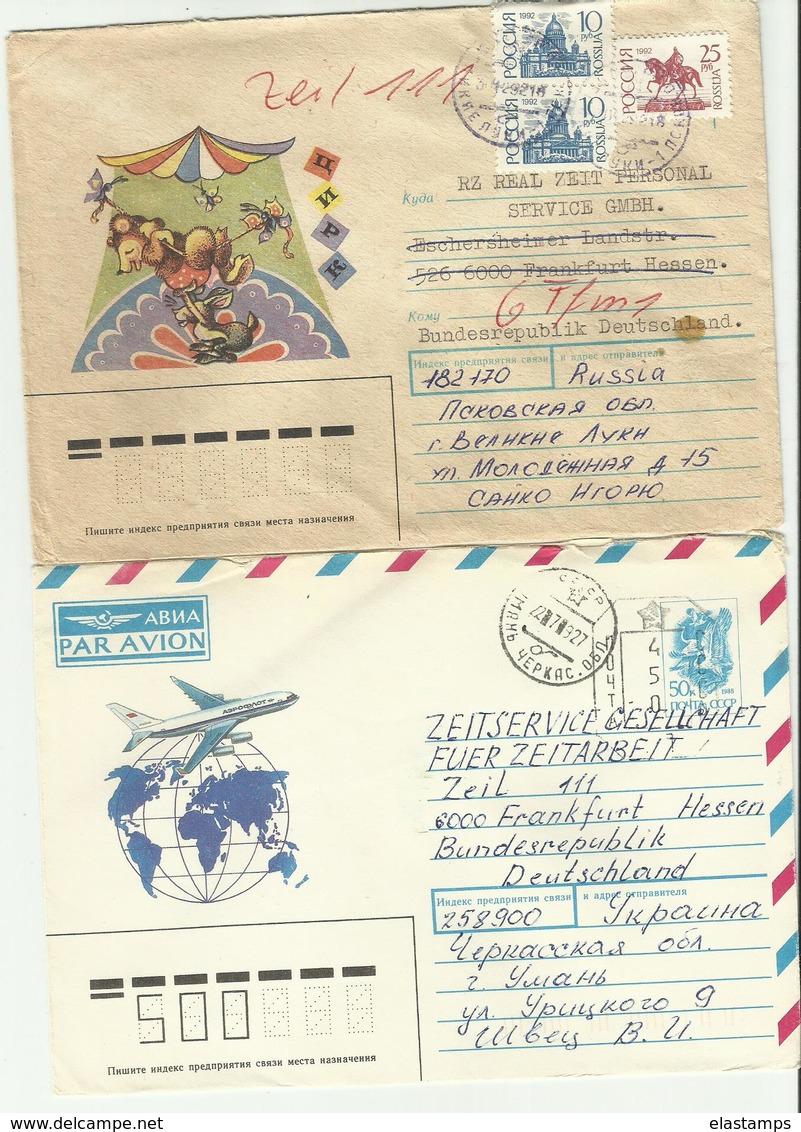 РОССИЯ 1992 10 руб ROSSIJA
РОССИЯ 1992 10 руб ROSSIJA
РОССИЯ 1992 25 руб ROSSIJA
Zeil 111
ЦИРК
Куда
RZ REAL ZEIT PERSONAL
SERVICE GMBH.
Eschersheimer Landstr.
526 6000 Frankfurt Hessen.
6 Ffm 1
Кому
Bundesrepublik Deutschland.
Индекс предприятия связи и адрес отправителя
182170 Russia
Псковская обл.
г. Великие Луки
ул. Молодёжная д 15
Сайко Игорю
Пишите индекс предприятия связи места назначения
АВИА
PAR AVION
АЭРОФЛОТ
СССР
УМАНЬ ЧЕРКАС. ОБЛ.
ПОЧТА
450
50к 1988
ПОЧТА СССР
ZEITSERVICE GESELLSCHAFT
FUER ZEITARBEIT
Zeil 111
6000 Frankfurt Hessen
Bundesrepublik
Deutschland
Индекс предприятия связи и адрес отправителя
258900 Украина
Черкасская обл.
г. Умань
ул. Урицкого 9
Швец В. И.
500
Пишите индекс предприятия связи места назначения
elastamps